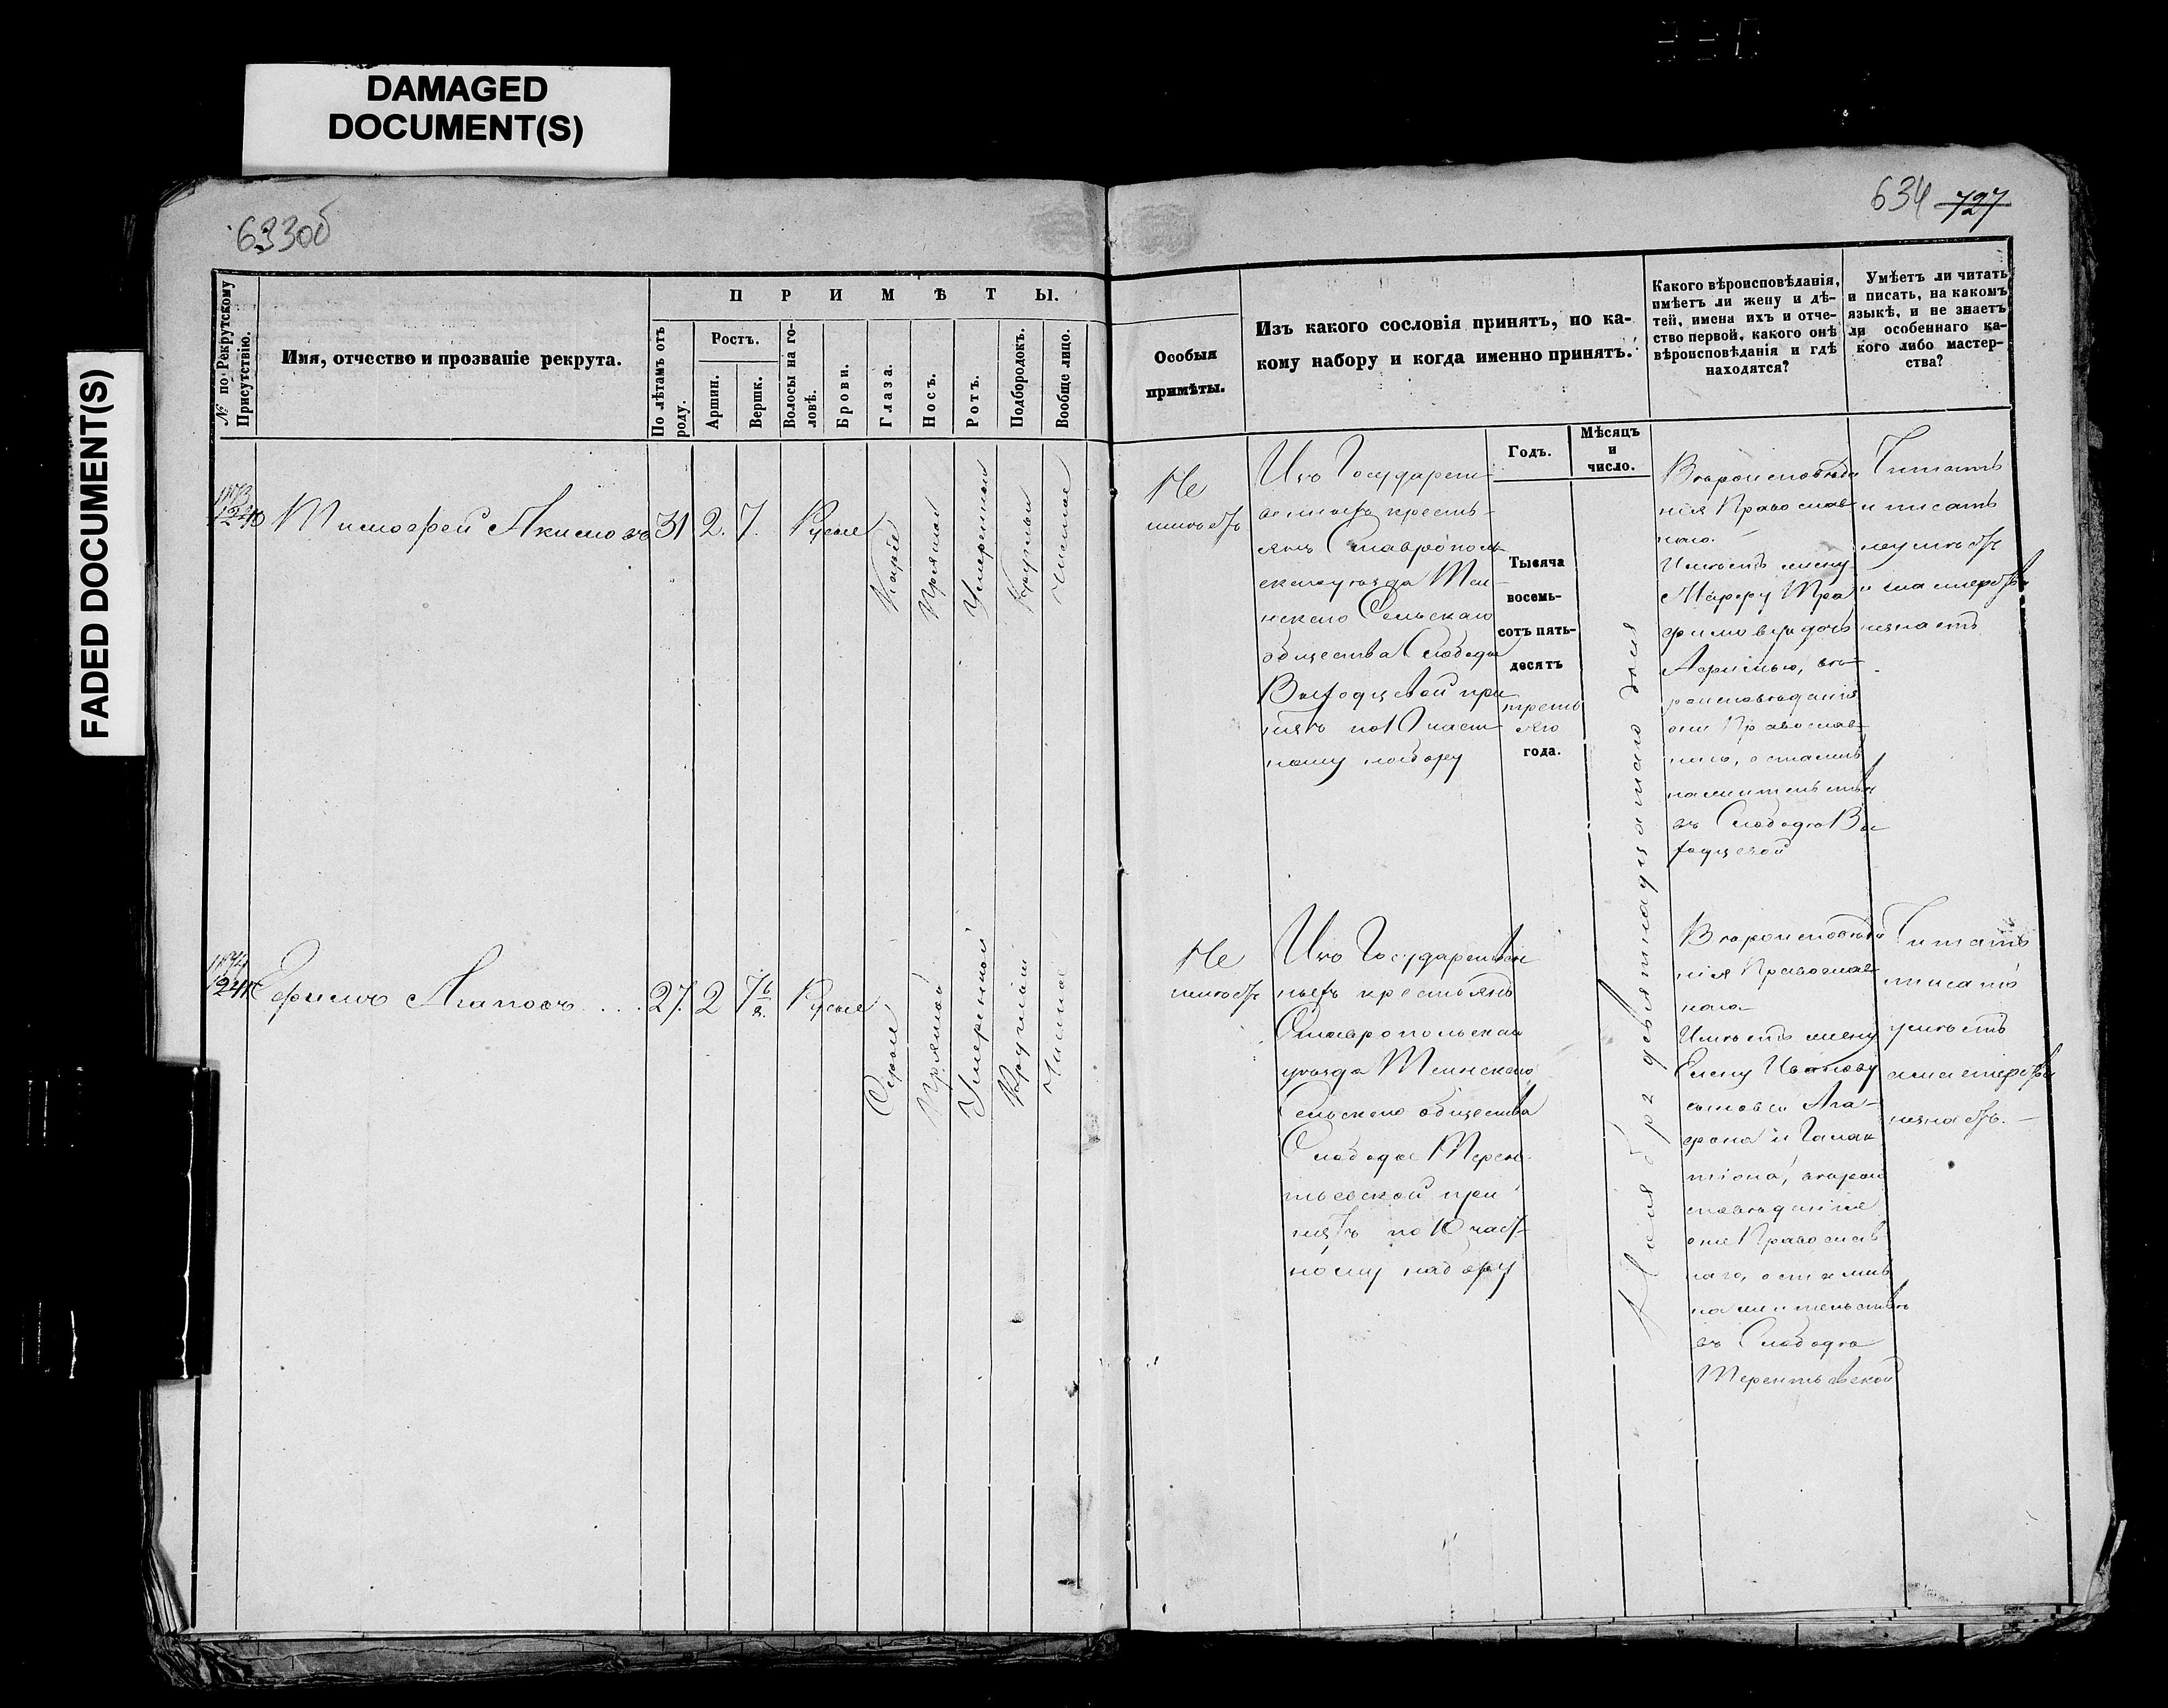 DAMAGED
DOCUMENT(S)
FADED DOCUMENT(S)
633об
634 727
№ по Рекрутскому
Присутствію.
Имя, отчество и прозваніе рекрута.
ПРИМѢТЫ.
По лѣтамъ отъ
роду.
Ростъ.
Аршин.
Вершк.
Волосы на го-
ловѣ.
Брови.
Глаза.
Носъ.
Ротъ.
Подбородокъ.
Вообще лицо.
Особыя
примѣты.
Изъ какого сословія принятъ, по ка-
кому набору и когда именно принятъ.
Годъ.
Мѣсяцъ
и
число.
Какого вѣроисповѣданія,
имѣетъ ли жену и дѣ-
тей, имена ихъ и отче-
ство первой, какого онѣ
вѣроисповѣданія и гдѣ
находятся?
Умѣетъ ли читать
и писать, на какомъ
языкѣ, и не знаетъ
ли особеннаго ка-
кого либо мастер-
ства?
Тимофей Акимовъ 31 2. 7. Русые
Каріе
Прямой
Умеренный
Круглый
Чистое
Не
имѣетъ
Изъ Государст-
венныхъ кресть-
янъ Ставрополь-
скагоуѣзда Теи-
нскаго Сельскаго
общества Слободы
при
нятъ по 10 част
ному набору
Тысяча
восемь-
сотъ пять-
десятъ
треть
яго
года.
Ноября девятнадцатаго дня
Вѣроисповѣда
нія Православ
наго.
Имѣетъ жену
Марфу Тро
фимову и дочь
вѣ-
роисповѣданія
они Православ-
наго, остались
на жительствѣ
въ Слободѣ
Читать
и писать
неумѣетъ
и мастерства
незнаетъ
Ефимъ Агаповъ.... 27. 2 7 6/8. Русые
Серые
Прямой
Умеренной
Круглый
Чистое
Не
имѣетъ
Изъ Государствен
ныхъ крестьянъ
Ставропольскаго
уѣзда Теинскаго
Сельскаго общества
Слободы Терен-
тьевской при
нятъ по 10 част-
ному набору
Вѣроисповѣда
нія Православ
наго
Имѣетъ жену
Елену Иванову
сыновей Ага-
фона и Галак
тіона, вѣрои
сповѣданія
они Православ
наго, остались
на жительствѣ
въ Слободѣ
Терентьевской
Читать
писать
умѣетъ
а мастерства
незнаетъ.